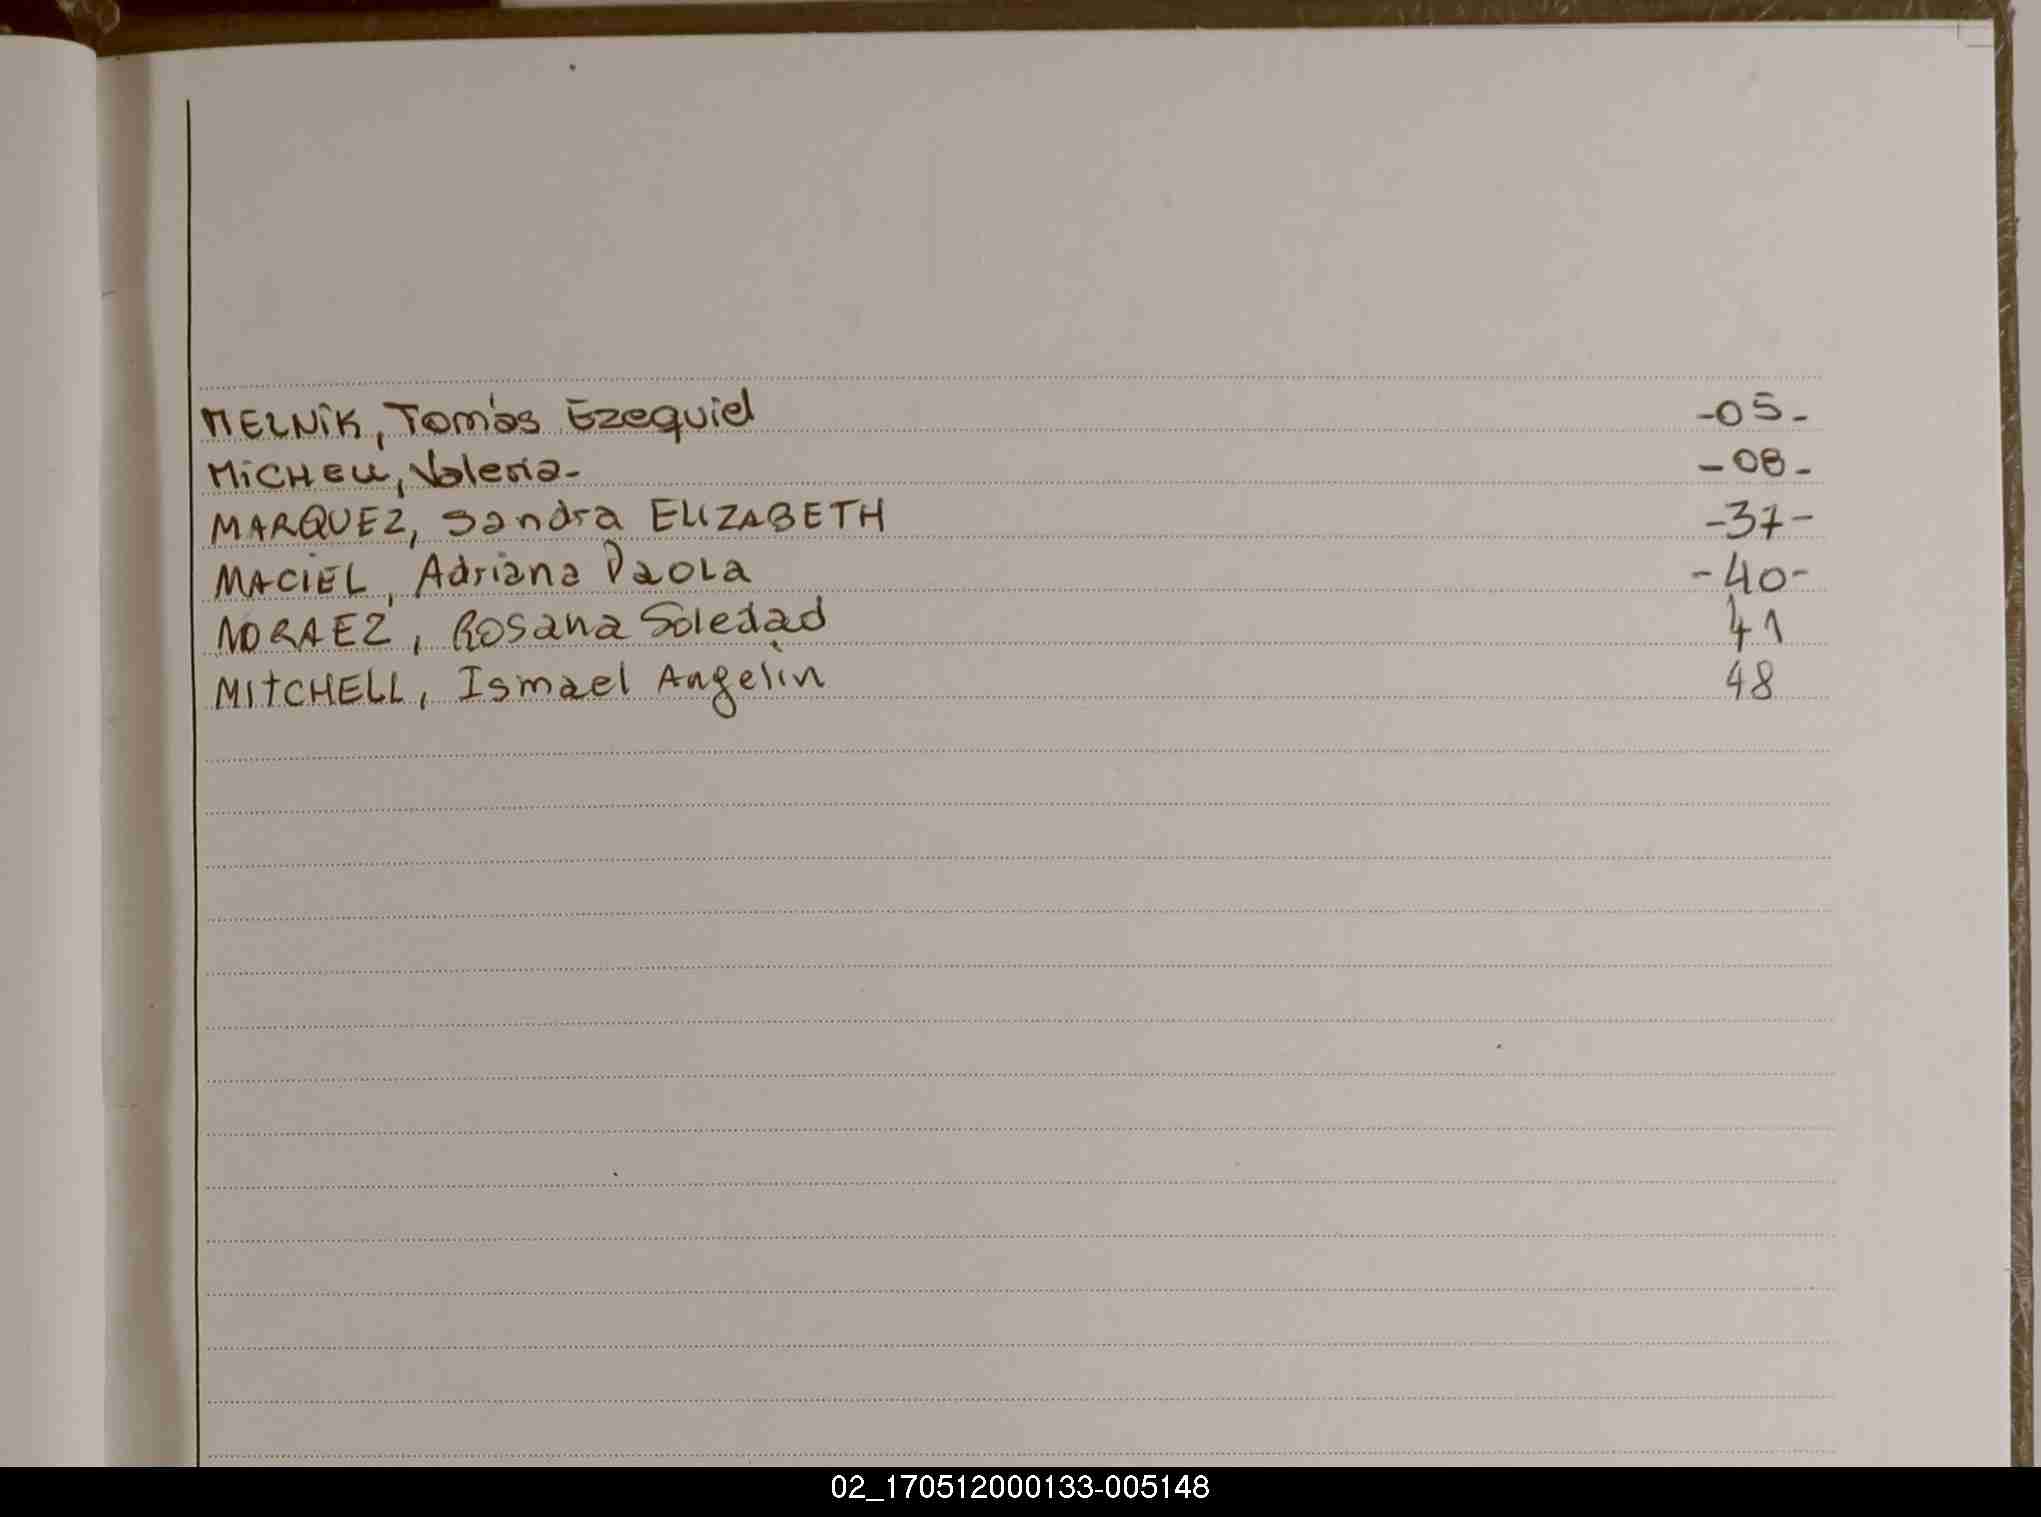 MELNIK, Tomás Ezequiel -05-
MICHELLI, Valeria- -08-
MARQUEZ, Sandra ELIZABETH -37-
MACIEL, Adriana Paola -40-
NORAEZ, Rosana Soledad 41
MITCHELL, Ismael Angelin 48
02_170512000133-005148